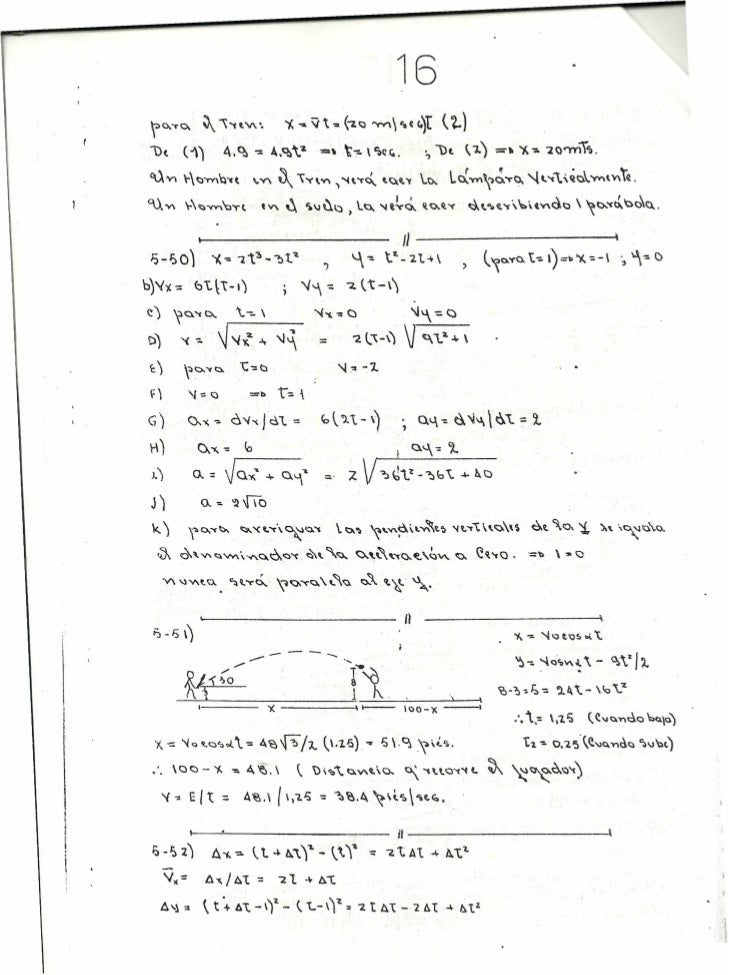 16
para el Tren: x = v̄t = (20 m/seg)t (2)
De (1) 4.9 = 4.9t² => t = 1 seg. , De (2) => x = 20 mts.
Un Hombre en el Tren, verá caer La Lámpara Verticalmente.
Un Hombre en el suelo, La verá caer describiendo 1 parábola.
//
5-50) x = 2t³-3t² , y = t²-2t+1 , (para t=1) => x = -1 ; y = 0
b) Vx = 6t(t-1) ; Vy = 2(t-1)
c) para t=1 Vx=0 Vy=0
D) v = √(Vx² + Vy²) = 2(t-1) √(9t²+1) .
E) para t=0 V=-2
F) V=0 => t=1
G) ax = dVx/dt = 6(2t-1) ; ay = dVy/dt = 2
H) ax = 6 ay = 2
i) a = √(ax² + ay²) = 2 √(36t²-36t+10)
J) a = 2√10
K) para averiguar Las pendientes verticales de la y se iguala
el denominador de la aceleración a Cero. => 1=0
nunca será paralela al eje y.
//
5-51) x = Vo cosα t
y = Vo senα t - gt²/2
30 8
8-3=5 = 24t - 16t²
x 100-x
∴ t₁ = 1,25 (Cuando bajo)
x = Vo cosα t = 48√3/2 (1.25) = 51.9 piés. t₂ = 0,25 (Cuando Sube)
∴ 100-x = 48.1 ( Distancia q' recorre el jugador)
V = E/t = 48.1/1,25 = 38.4 piés/seg.
//
5-52) Δx = (t + Δt)² - (t)² = 2tΔt + Δt²
V̄x = Δx/Δt = 2t + Δt
Δy = (t + Δt -1)² - (t-1)² = 2tΔt - 2Δt + Δt²